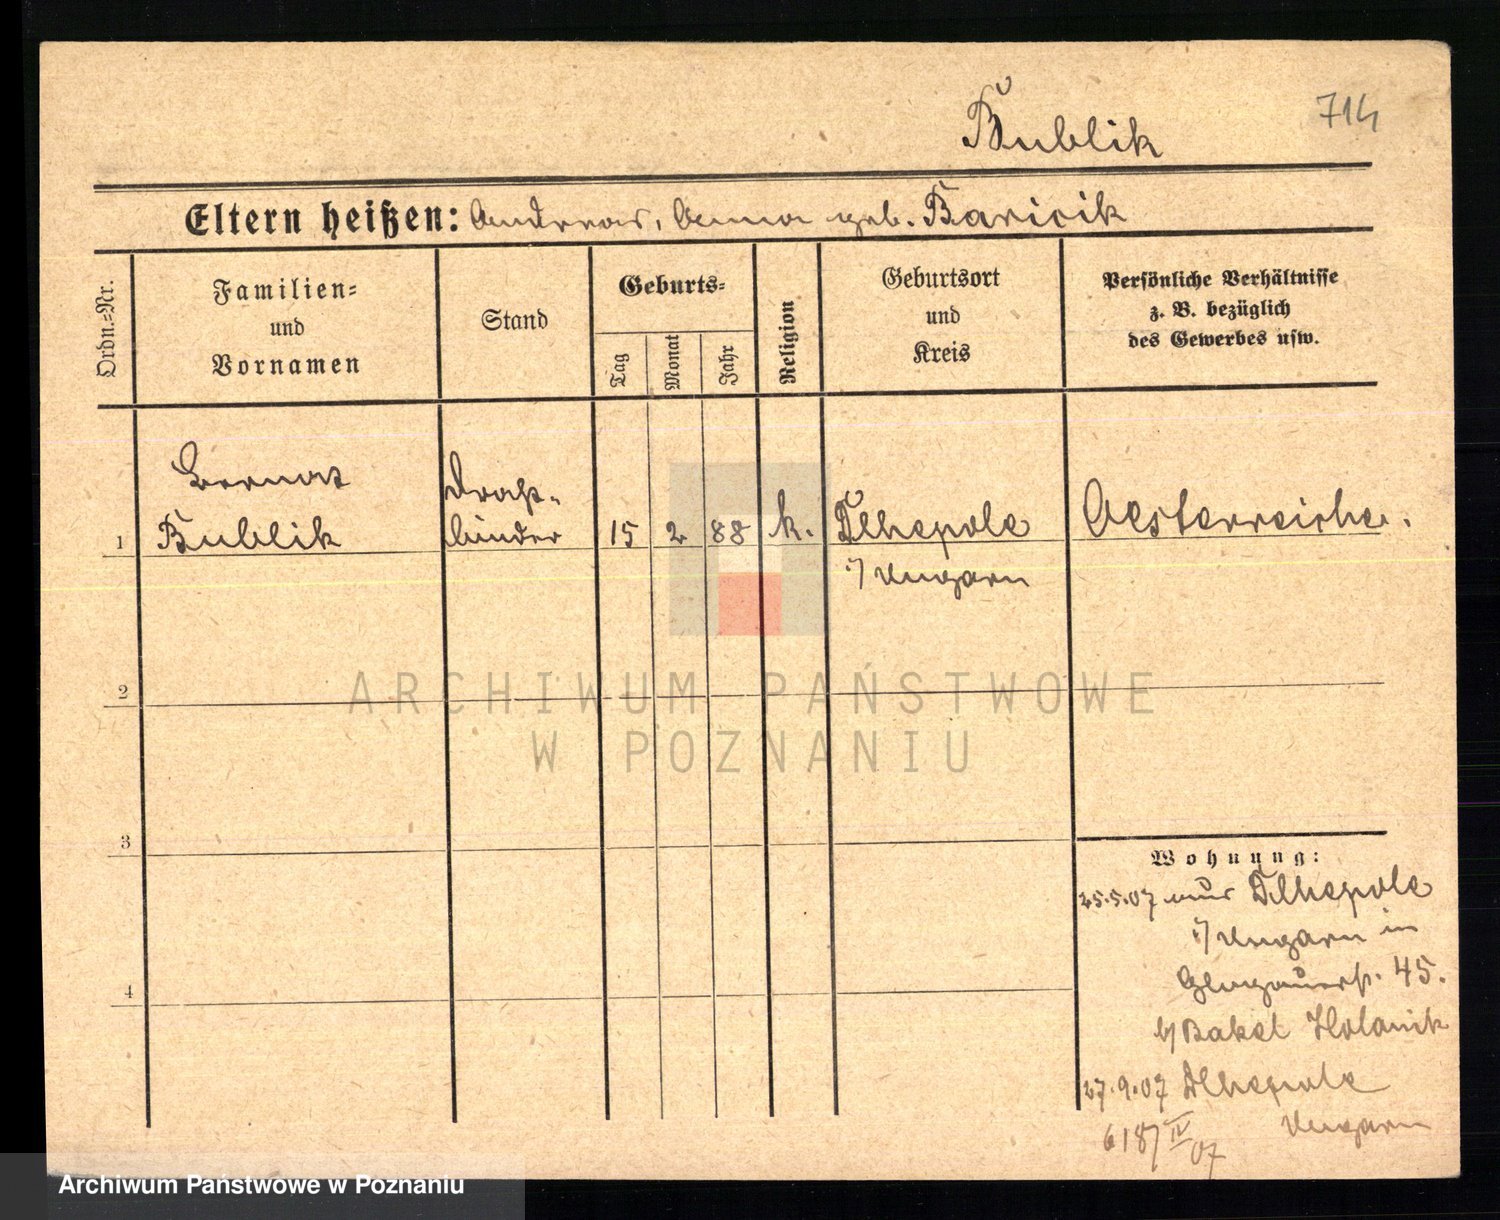 714
Bublik
Eltern heißen: Andreas, Anna geb. Baricik
Ordn.=Nr.
Familien=
und
Vornamen
Stand
Geburts=
Tag
Monat
Jahr
Religion
Geburtsort
und
Kreis
Persönliche Verhältnisse
z. B. bezüglich
des Gewerbes usw.
Draht-
1 Bublik binder 15 2 88 k. Dlhepole Oesterreicher.
i/ Ungarn
2
3
Wohnung:
25.5.07 aus Dlhepole
i/ Ungarn in
Glogauerst. 45.
b/ Bakel Holanik
4
27.9.07 Dlhepole
Ungarn
6187 IV 07
ARCHIWUM PAŃSTWOWE
W POZNANIU
Archiwum Państwowe w Poznaniu